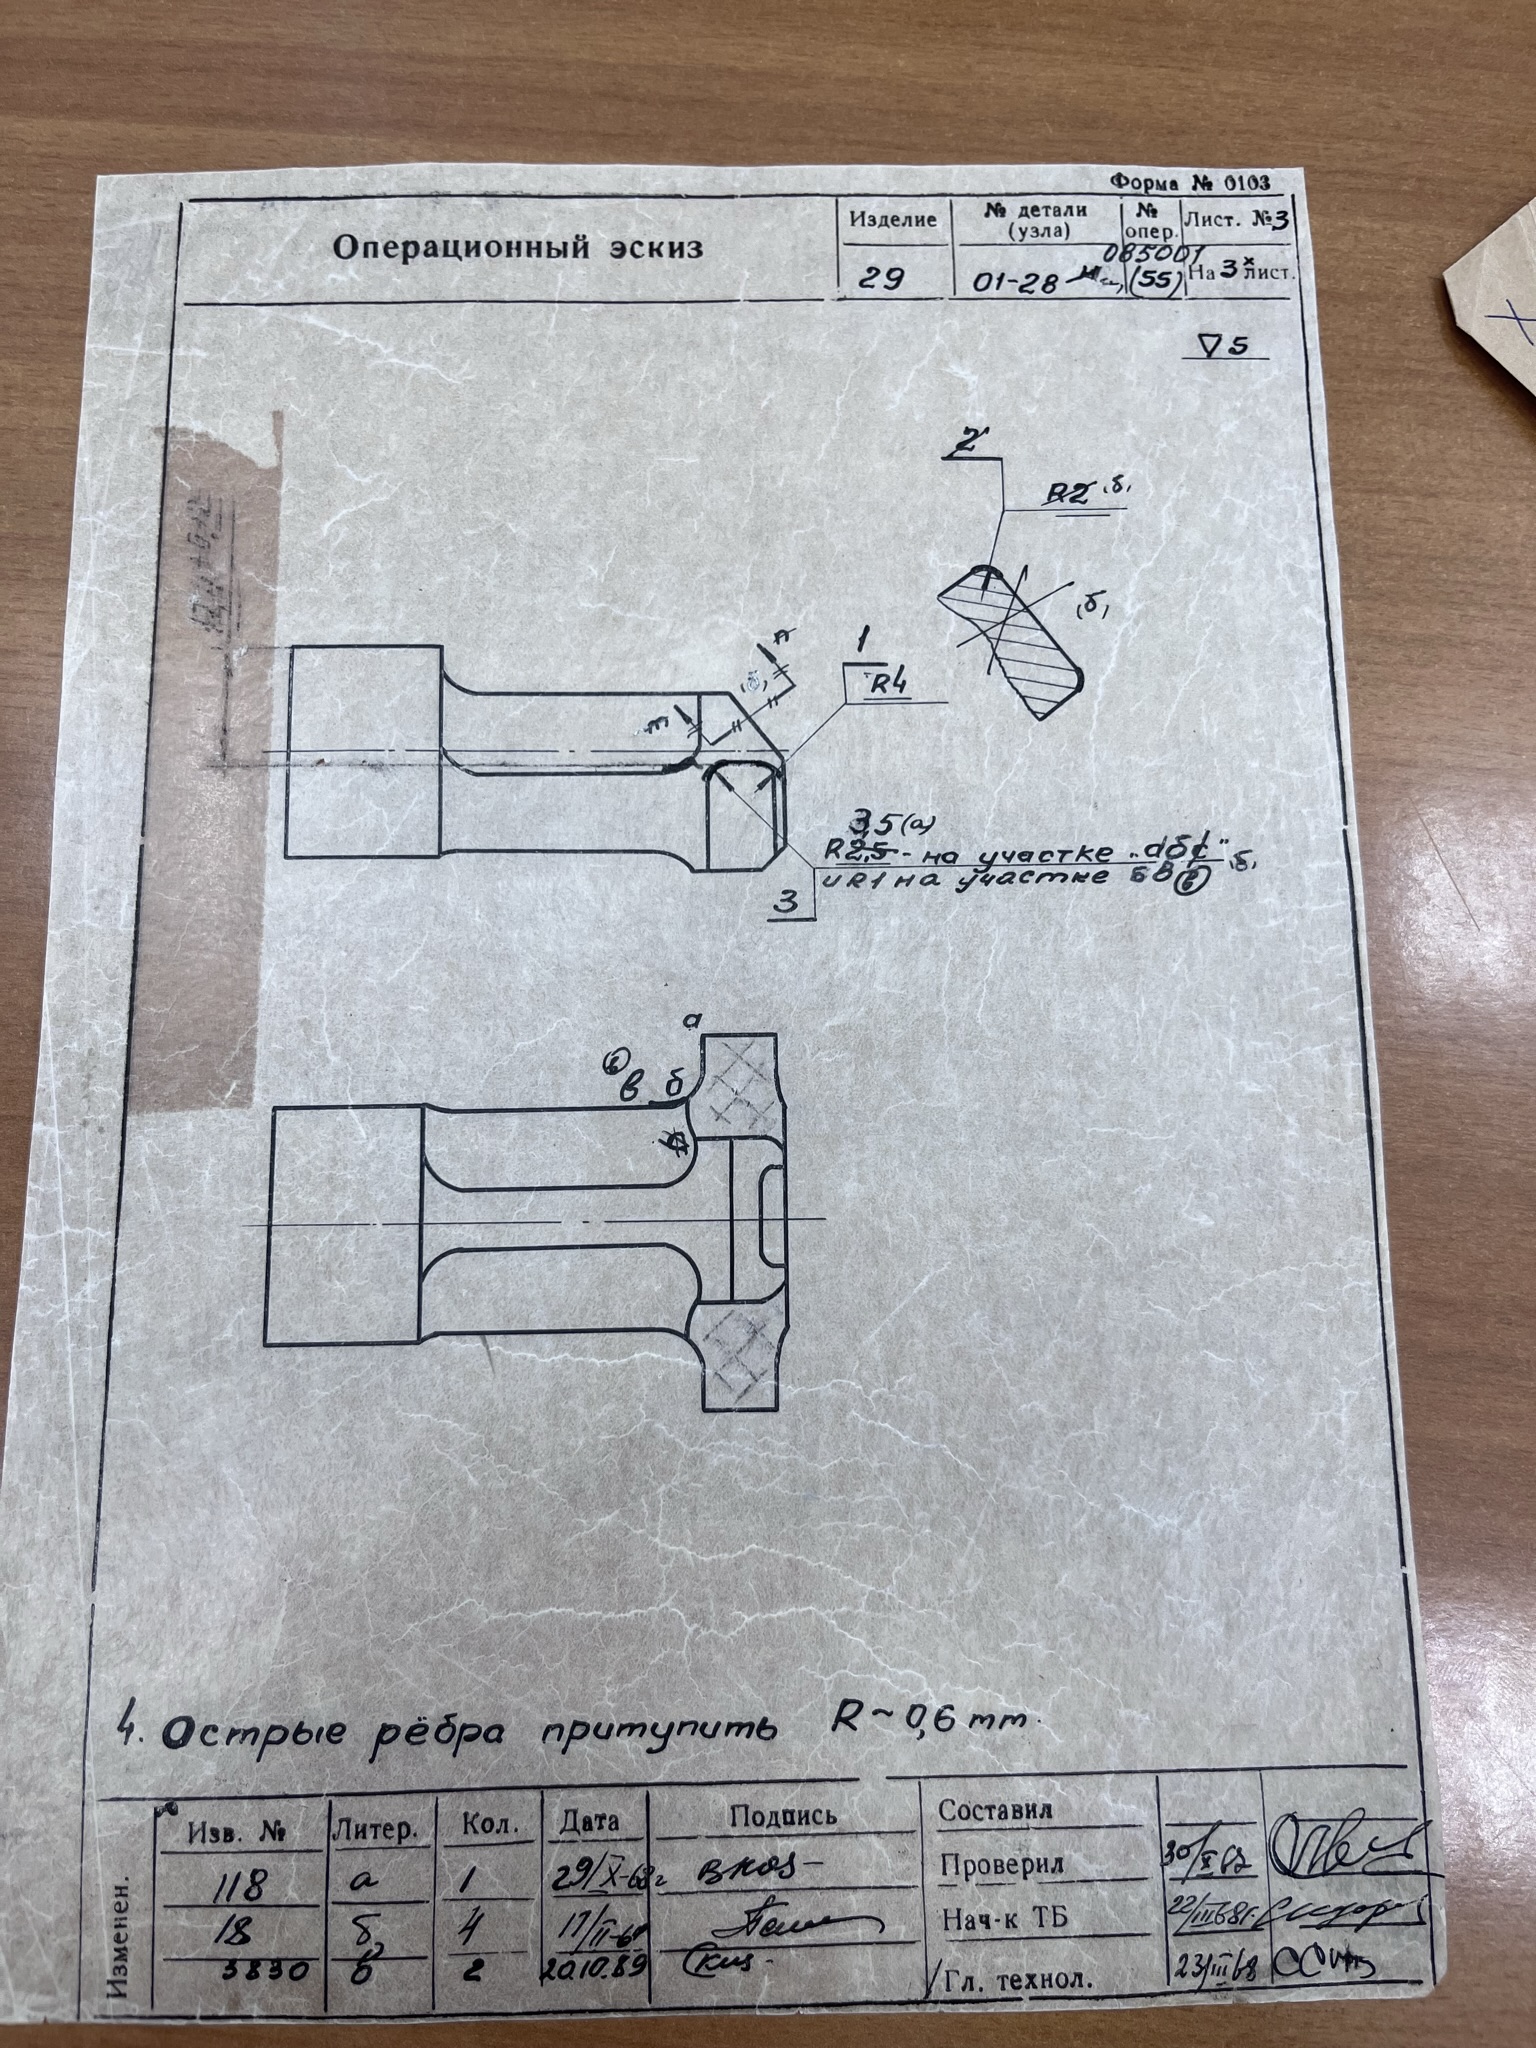 Форма № 0103
Операционный эскиз
Изделие
№ детали (узла)
№ опер.
Лист. №3
29
01-28
085001
(55)
На 3х лист.
▽5
2
R2 (б)
(б)
1
R4
3,5(а)
R2,5 - на участке „абс" (б)
и R1 на участке бв (в)
3
а
(в)
в б
4. Острые рёбра притупить R~0,6 mm.
Изменен.
Изв. № Литер. Кол. Дата Подпись
118 а 1 29/X-68г
18 б 4 17/II-69
3830 в 2 20.10.89
Составил
Проверил
Нач-к ТБ 22/III 68г.
Гл. технол. 23/III 68